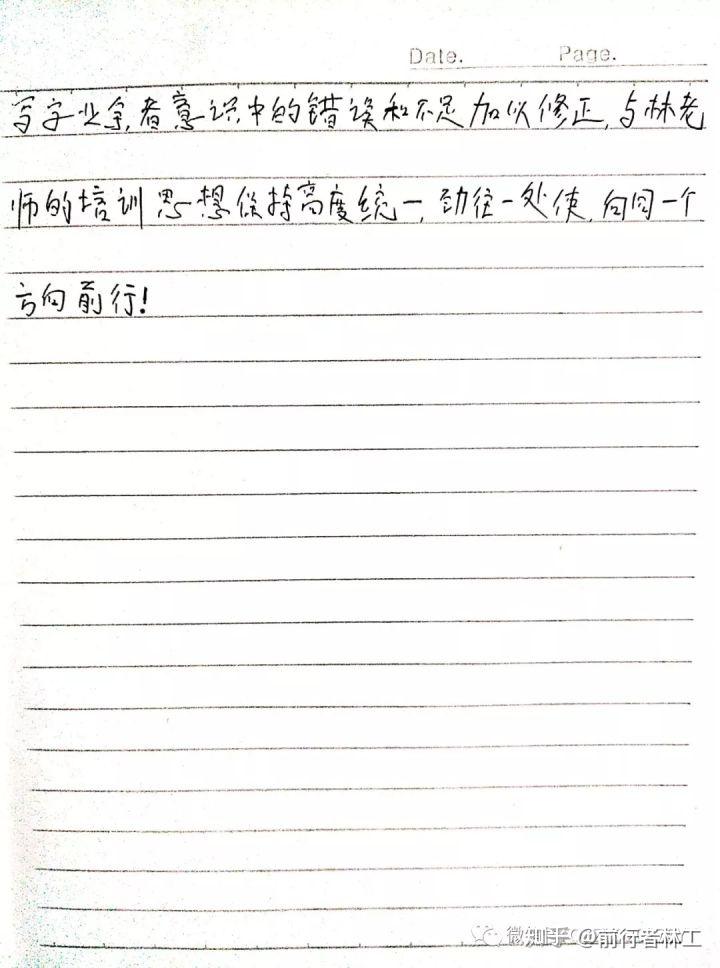 Date. Page.
写字业余者意识中的错误和不足加以修正,与林老
师的培训思想保持高度统一,劲往一处使,向同一个
方向前行!
知乎 @前行者林工